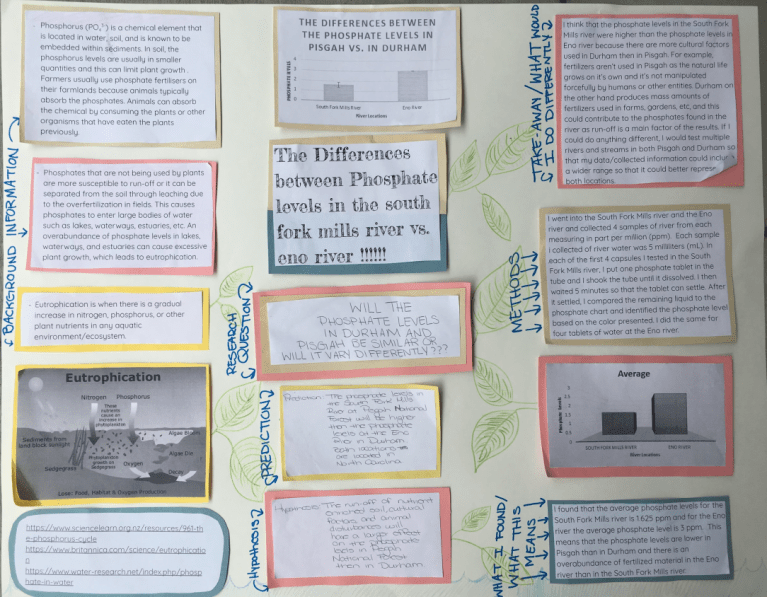 BACKGROUND INFORMATION
- Phosphorus (PO₄³⁻) is a chemical element that
is located in water, soil, and is known to be
embedded within sediments. In soil, the
phosphorus levels are usually in smaller
quantities and this can limit plant growth.
Farmers usually use phosphate fertilisers on
their farmlands because animals typically
absorb the phosphates. Animals can absorb
the chemical by consuming the plants or other
organisms that have eaten the plants
previously.
- Phosphates that are not being used by plants
are more susceptible to run-off or it can be
separated from the soil through leaching due
to the overfertilization in fields. This causes
phosphates to enter large bodies of water
such as lakes, waterways, estuaries, etc. An
overabundance of phosphate levels in lakes,
waterways, and estuaries can cause excessive
plant growth, which leads to eutrophication.
- Eutrophication is when there is a gradual
increase in nitrogen, phosphorus, or other
plant nutrients in any aquatic
environment/ecosystem.
Eutrophication
Nitrogen Phosphorus
These
nutrients
cause an
increase in
phytoplankton
Sediments from
land block sunlight
Algae Bloom
Algae Die
Phytoplankton
Seagrasses
Oxygen
Decay
Loss: Food, Habitat & Oxygen Production
https://www.sciencelearn.org.nz/resources/961-th
e-phosphorus-cycle
https://www.britannica.com/science/eutrophicatio
n
https://www.water-research.net/index.php/phosp
hate-in-water
THE DIFFERENCES BETWEEN
THE PHOSPHATE LEVELS IN
PISGAH VS. IN DURHAM
4
3
2
1
0
South Fork Mills River
Eno River
River Locations
The Differences
between Phosphate
levels in the south
fork mills river vs.
eno river !!!!!!
RESEARCH
QUESTION
WILL THE
PHOSPHATE LEVELS
IN DURHAM AND
PISGAH BE SIMILAR OR
WILL IT VARY DIFFERENTLY???
PREDICTION
Prediction: The phosphate levels in
the South Fork Mills
River at Pisgah National
Forest will be higher
then the phosphate
levels at the Eno
River in Durham.
Both locations
are located in
North Carolina.
Hypothesis
Hypothesis: The run-off of nutrient
enriched soil, cultural
factors and animal
disturbances will
have a larger effect
on the phosphate
levels in Pisgah
National Forest
then in Durham.
TAKE-AWAY/WHAT WOULD
I DO DIFFERENTLY
I think that the phosphate levels in the South Fork
Mills river were higher than the phosphate levels in
Eno river because there are more cultural factors
used in Durham then in Pisgah. For example,
fertilizers aren't used in Pisgah as the natural life
grows on it's own and it's not manipulated
forcefully by humans or other entities. Durham on
the other hand produces mass amounts of
fertilizers used in farms, gardens, etc, and this
could contribute to the phosphates found in the
river as run-off is a main factor of the results. If I
could do anything different, I would test multiple
rivers and streams in both Pisgah and Durham so
that my data/collected information could
a wider range so that it could better
both locations.
METHODS
I went into the South Fork Mills river and the Eno
river and collected 4 samples of river from each
measuring in part per million (ppm). Each sample
I collected of river water was 5 milliliters (mL). In
each of the first 4 capsules I tested in the South
Fork Mills river, I put one phosphate tablet in the
tube and I shook the tube until it dissolved. I then
waited 5 minutes so that the tablet can settle. After
it settled, I compared the remaining liquid to the
phosphate chart and identified the phosphate level
based on the color presented. I did the same for
four tablets of water at the Eno river.
Average
SOUTH FORK MILLS RIVER
ENO RIVER
River Locations
WHAT I FOUND/
WHAT THIS
MEANS
I found that the average phosphate levels for the
South Fork Mills river is 1.625 ppm and for the Eno
river the average phosphate level is 3 ppm. This
means that the phosphate levels are lower in
Pisgah than in Durham and there is an
overabundance of fertilized material in the Eno
river than in the South Fork Mills river.